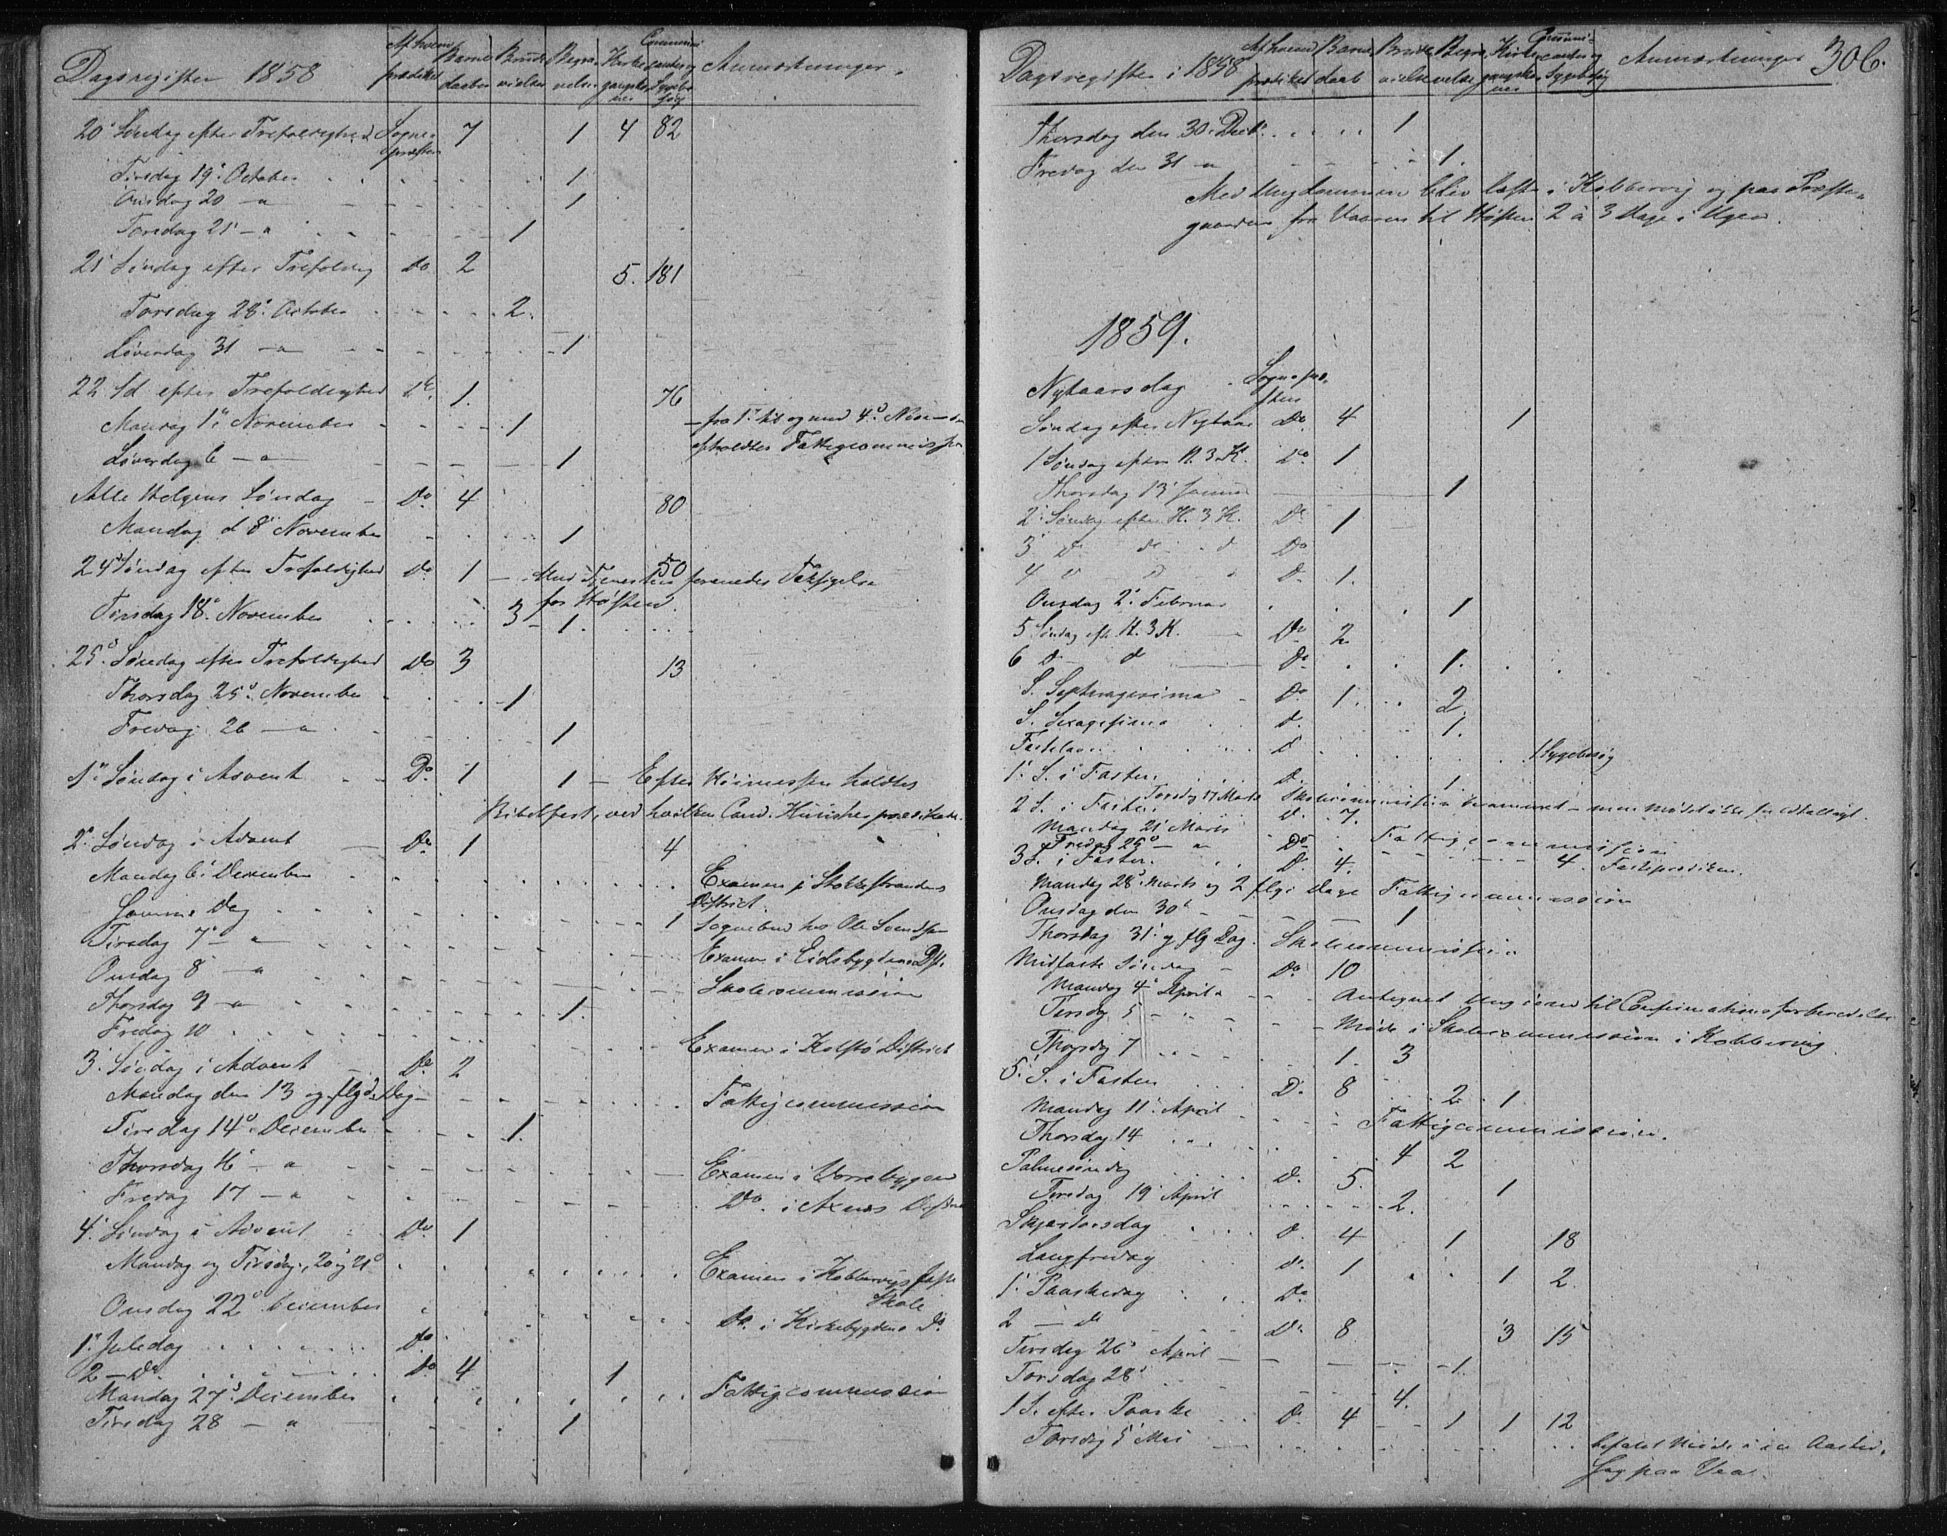 Dagsregister 1858 Af hvem prædiket Barnedaaber Brudevielser Begravelser Kirkegangskoner Communicanter og Sygebesøg Anmærkninger.
20de Søndag efter Trefoldighed Sognepræsten 7 1 4 82
Tirsdag 19de October 1
Onsdag 20 — " 1
Torsdag 21 — " 1
21 Søndag efter Trefoldigh Do 2 5. 181
Torsdag 28de October 2.
Løverdag 31 — " 1
22 Sd efter Trefoldighed Do. 1. 76
Mandag 1ste November 1 — fra 1ste til og med 4de Novem
Løverdag 6 — " 1 afholdtes Fattigcommission
Alle Helgens Søndag Do. 4 80
Mandag d 8de November 1
24 Søndag efter Trefoldighed Do. 1 — Med Tjenesten 50 forenedes Taksigelse
for Høsten.
Tirsdag 18de November 3 — 1.
25de Søndag efter Trefoldighed Do 3 13
Thorsdag 25de November 1
Fredag 26 — " 1
1ste Søndag i Advent Do. 1 1 — Efter Høimessen holdtes
Bibelfest, ved hvilken Cand. prædikede.
2den Søndag i Advent Do. 1 4
Mandag 6te December Examen i Stokkestrandens
District.
Samme Dag 1 Sognebud hos Ole Svendsen
Tirsdag 7de — " Examen i Eidsbygdens Dist.
Onsdag 8 — " Skolecommission
Thorsdag 9 — " 1.
Fredag 10 Examen i Kolstø District
3. Søndag i Advent Do. 2
Mandag den 13 og flgd. Dag Fattigcommission
Tirsdag 14de December 1.
Thorsdag 16 — " Examen i Vorrebygden
Fredag 17 — " Do. i Axnes District
4. Søndag i Advent Do. 1
Mandag og Tirsdag, 20 og 21de Examen i Kobbervigs faste
Skole
Onsdag 22de December Do. i Kirkebygdens Do.
1ste Juledag Do.
2 — Do. Do 4 1
Mandag 27de December Fattigcommission
Tirsdag 28 — " 1
Dagsregister i 1858 Af hvem prædiket Barnedaab Brudevielse Begravelse Kirkegangskoner Communicanter og Sygebesøg Anmærkninger 306.
Thorsdag den 30 Decb. 1
Fredag den 31 — " 1.
Med Ungdommen blev læst i Kobbervig og paa Præste-
gaarden fra Vaaren til Høsten 2 à 3 Dage i Ugen.
1859.
Nytaarsdag Sognepræsten
Søndag efter Nytaar Do. 4 1
1 Søndag efter H. 3 K. Do 1
Thorsdag 13 Januar 1
2. Søndag efter H. 3 K. Do 1
3 d do d Do
4 d D Do 1.
Onsdag 2. Februar 1
5 Søndag eft. H. 3 K. Do 2
6 d — d Do 1.
S. Septuagesima Do 1. 2.
S. Sexagesima Do. 1.
Fastelavn Do 1 Sygebesøg
1. S. i Fasten. Do. 1.
Torsdag 17 Marts Skolecommission — men mødet ikke
2 S. i Faste. Do. 7.
Mandag 21 Marts Fattigcommission
Fredag 25de — " Do
3 S. i Fasten. Do. 4. 4. Fasteprædiken.
Mandag 28 Marts og 2 flg. Dage Fattigcommission
Onsdag den 30te 1
Thorsdag 31 og flg Dag. Skolecommission
Midfaste Søndag Do 10
Mandag 4de April Antegnet Ungdom til Confirmationsforberedelse
Tirsdag 5 — " Møde i Skolecommission i Kobbervig
Thorsdag 7 1. 3
5. S. i Fasten Do. 8 2 1.
Mandag 11. April Fattigcommission.
Thorsdag 14 4 2
Palmesøndag Do. 5. 1
Tirsdag 19 April 2.
Skjærtorsdag Do. 4 1 18
Langfredag Do. 1 1 2.
1. Paaskedag Do
2 — d Do 8 3 15
Tirsdag 26 April 1.
Torsdag 28 4.
1 S. efter Paaske Do. 4 1 1 12
Torsdag 5 Mai Møde i en Aasted-
Sag paa Vea.